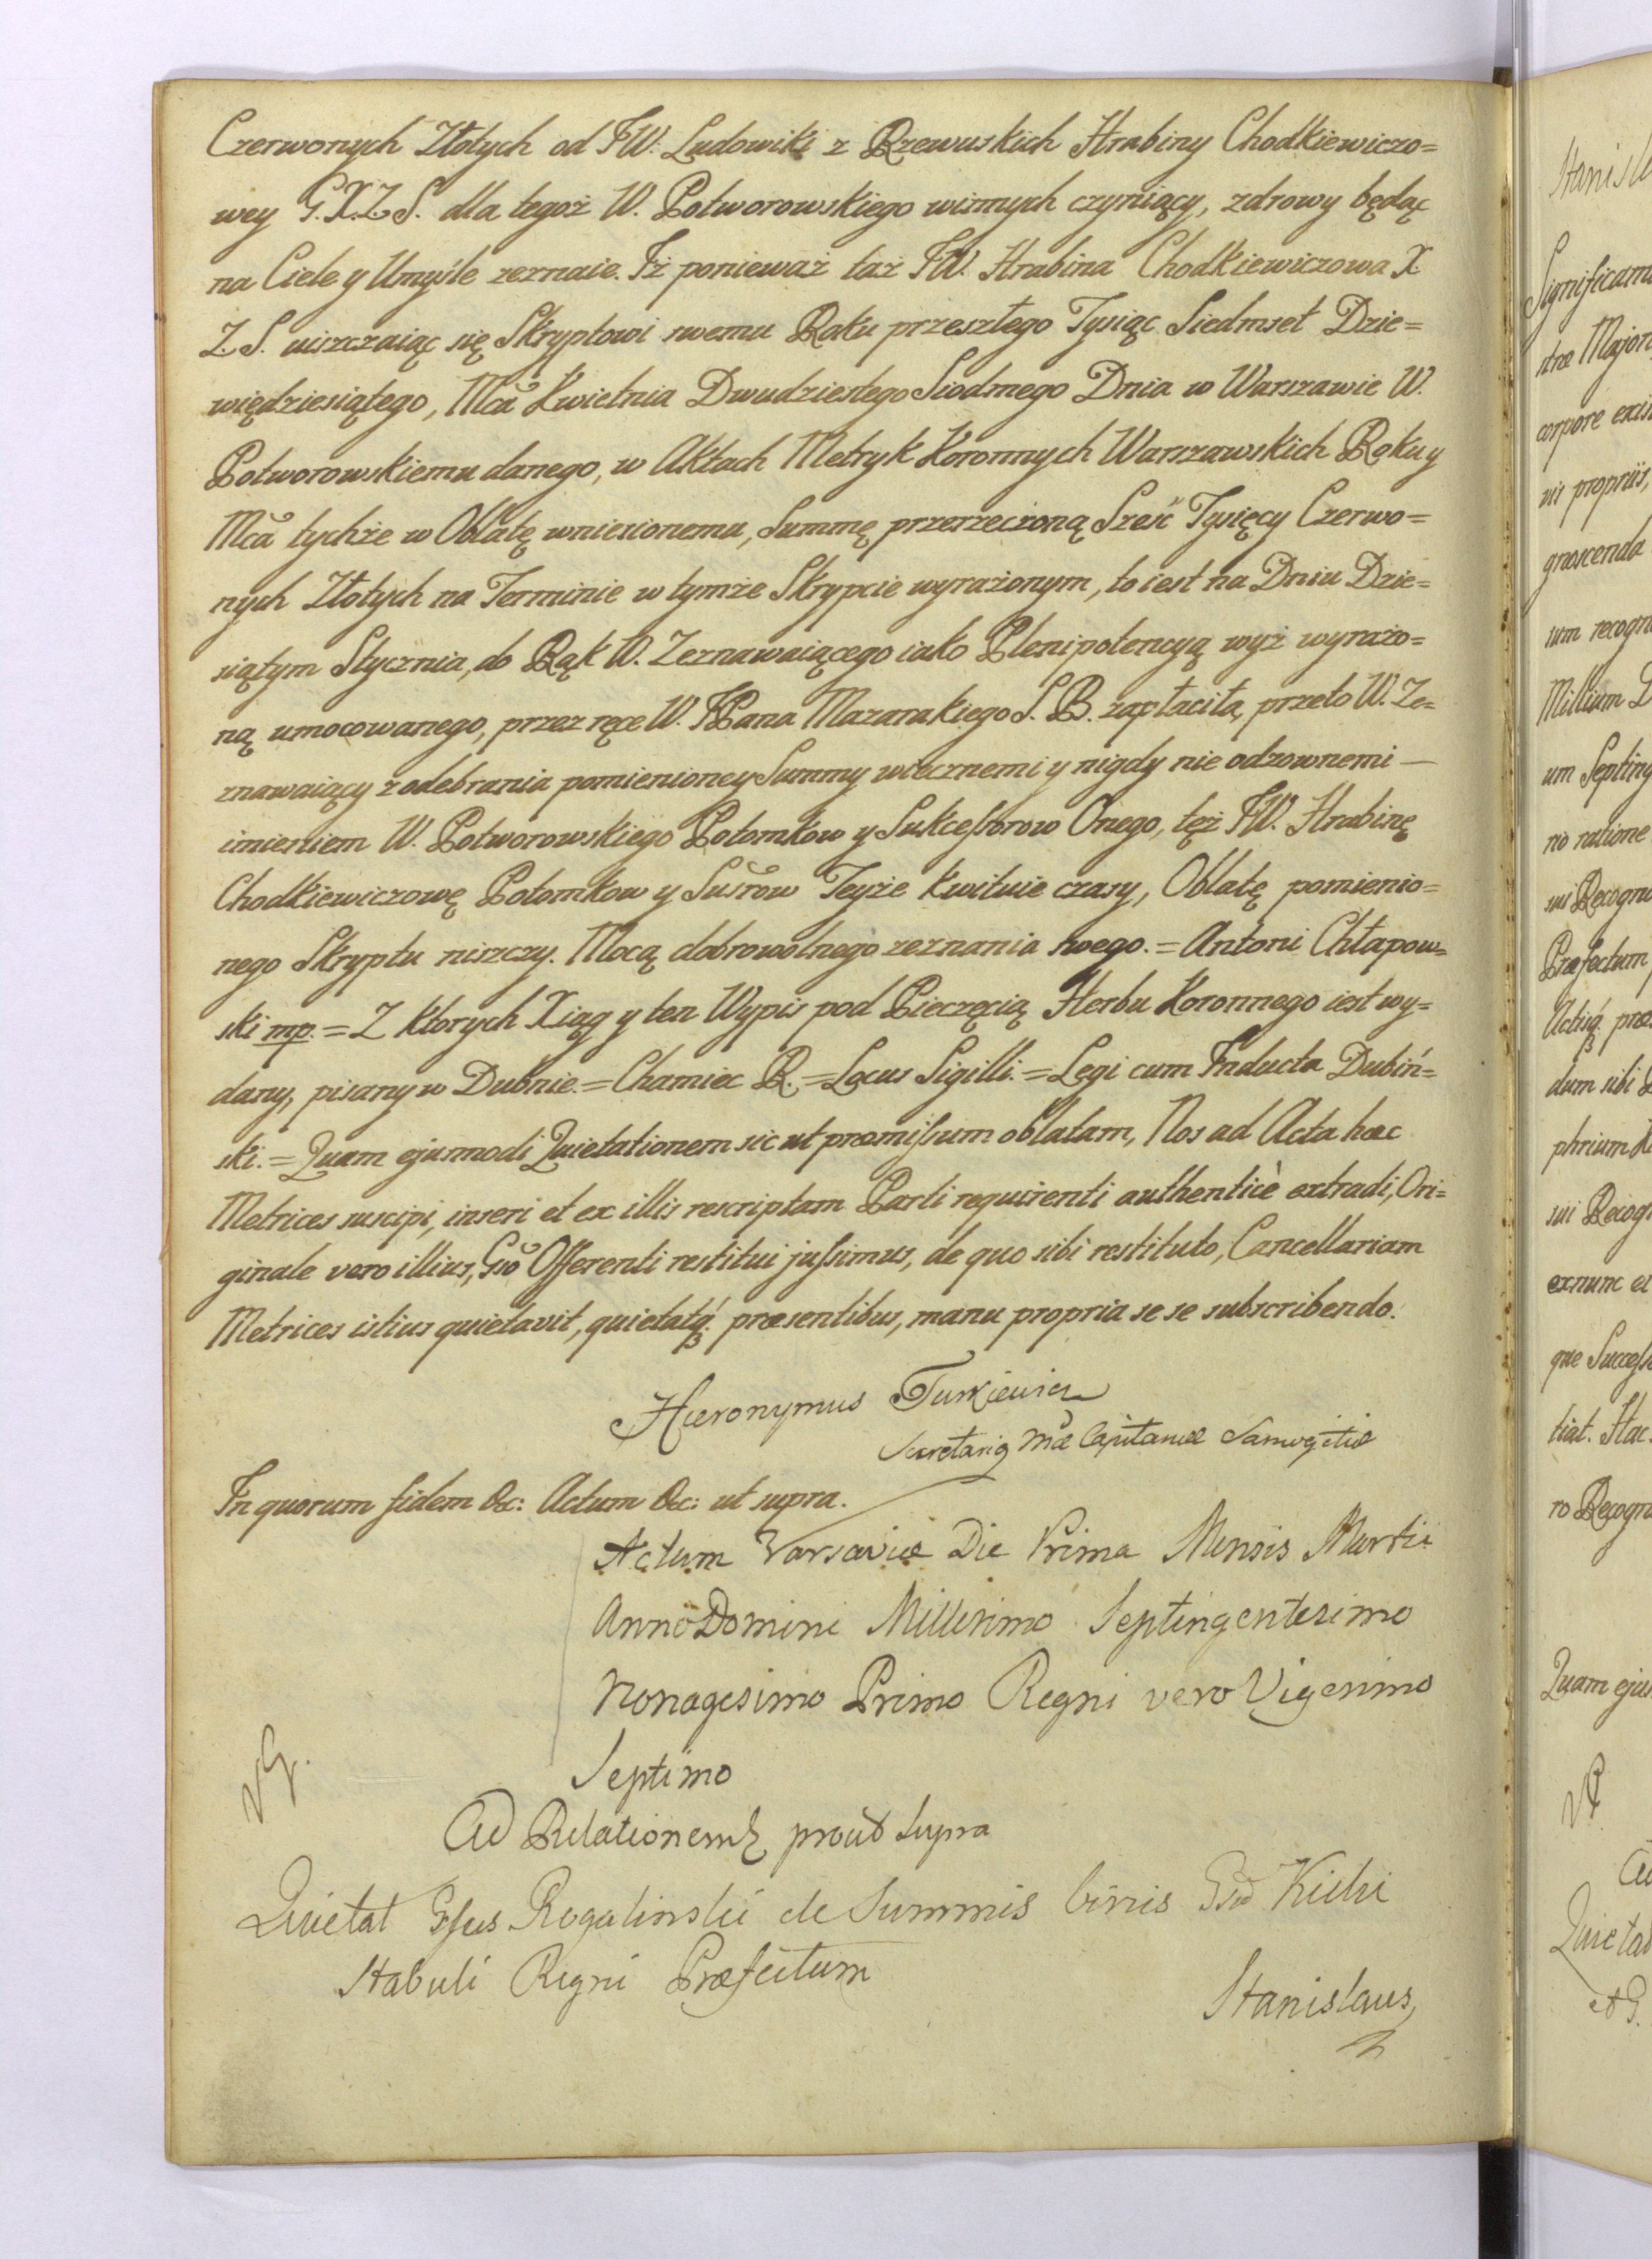 Czerwonych Złotych od JW. Ludowiki z Rzewuskich Hrabiny Chodkiewiczo=
wey G. X. Z. S. dla tegoż W. Potworowskiego winnych czyniący, zdrowy będąc
na Ciele y Umyśle zeznaie. Iż ponieważ taż JW. Hrabina Chodkiewiczowa X.
Z. S. uiszczaiąc się Skryptowi swemu Roku przeszłego Tysiąc Siedmset Dzie=
więdziesiątego, Mcã Kwietnia Dwudziestego Siodmego Dnia w Warszawie W.
Potworowskiemu danego, w Aktach Metryk Koronnych Warszawskich Roku y
Mcã tychże w Oblatę wniesionemu, Summę przerzeczoną Sześć Tysięcy Czerwo=
nych Złotych na Terminie w tymże Skrypcie wyrażonym, to iest na Dniu Dzie=
siątym Stycznia, do Rąk W. Zeznawaiącego iako Plenipotencyą wyż wyrażo=
ną umocowanego, przez ręce W. JPana Mazarakiego S. B. zapłaciła, przeto W. Ze=
znawaiący z odebrania pomienioney Summy wiecznemi y nigdy nie odzownemi —
imieniem W. Potworowskiego Potomkow y Sukceſsorow Onego, też JW. Hrabinę
Chodkiewiczowę Potomkow y Sus̃row Teyże kwituie czasy, Oblatę pomienio=
nego Skryptu niszczy. Mocą dobrowolnego zeznania swego. = Antoni Chłapow=
ski mp. = Z ktorych Xiąg y ten Wypis pod Pieczęcią Herbu Koronnego iest wy=
dany, pisany w Dubnie. = Chamiec R. = Locus Sigilli. = Legi cum Inducta Dubiń=
ski. = Quam ejusmodi Quietationem sic ut præmiſsum oblatam, Nos ad Acta hæc
Metrices suscipi, inseri et ex illis rescriptam Parti requirenti authenticè extradi, Ori=
ginale vero illius, Gsõ Offerenti restitui juſsimus, de quo sibi restituto, Cancellariam
Metrices istius quietavit, quietatq́ꝫ præsentibus, manu propria se se subscribendo.
Hieronymus Turkiewicz
Secretariꝯ Mæ Capitaneæ Samogitiæ
In quorum fidem &c: Actum &c: ut supra.
Actum Varsaviæ Die Prima Mensis Martii
Anno Domini Millesimo Septingentesimo
Nonagesimo Primo Regni vero Vigesimo
Septimo
Ad Relationem prout Supra
Quietat Gsus Rogalinski de Summis binis Gsũ Kicki
Stabuli Regni Præfectum
Stanislaus